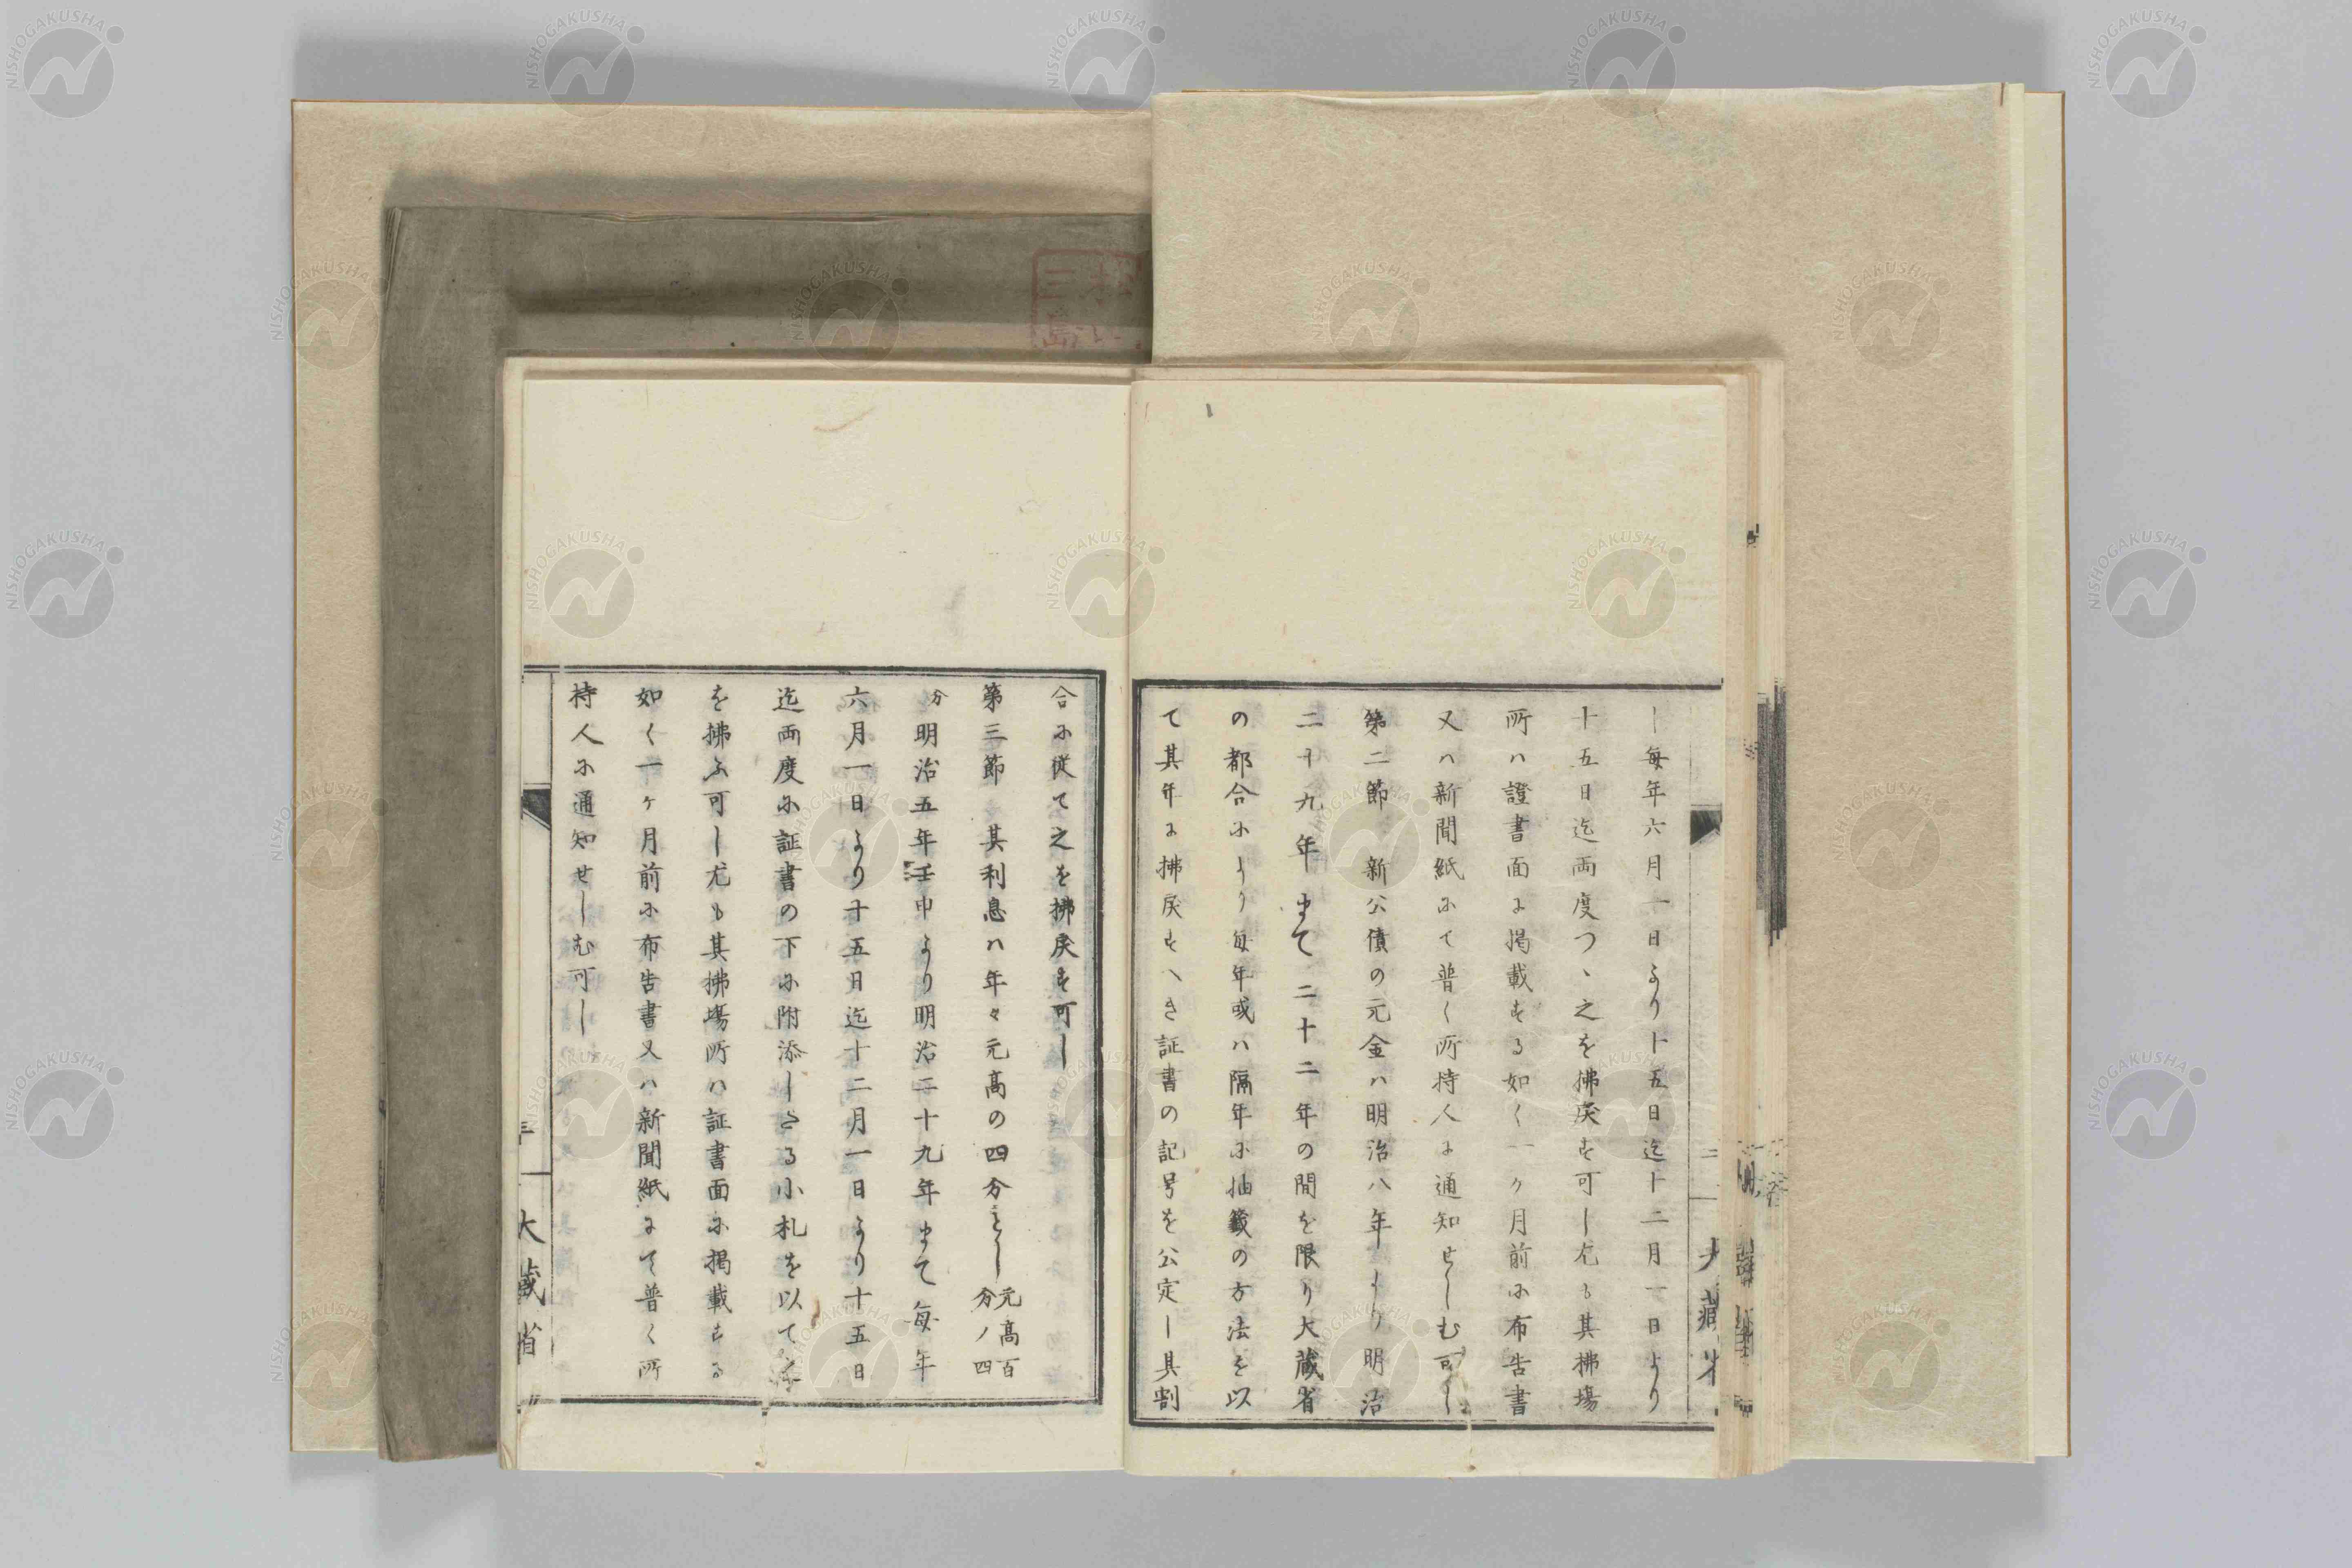 し毎年六月一日より十五日迄十二月一日より
十五日迄両度つゝ之を拂戻す可し尤も其拂場
所ハ證書面に掲載する如く一ケ月前に布告書
又ハ新聞紙にて普く所持人に通知せしむ可し
第二節 新公債の元金ハ明治八年より明治
二十九年まて二十二年の間を限り大蔵省
の都合により毎年或ハ隔年に抽籤の方法を以
て其年に拂戻すへき証書の記号を公定し其割
合に従て之を拂戻す可し
第三節 其利息ハ年々元高の四分とし 元高百分ノ四
分 明治五年壬申より明治二十九年まて毎年
六月一日より十五日迄十二月一日より十五日
迄両度に証書の下に附添したる小札を以て
を拂ふ可し尤も其拂場所ハ証書面に掲載する
如く一ケ月前に布告書又ハ新聞紙にて普く所
持人に通知せしむ可し
大蔵省
大藏
三島
NISHOGAKUSHA